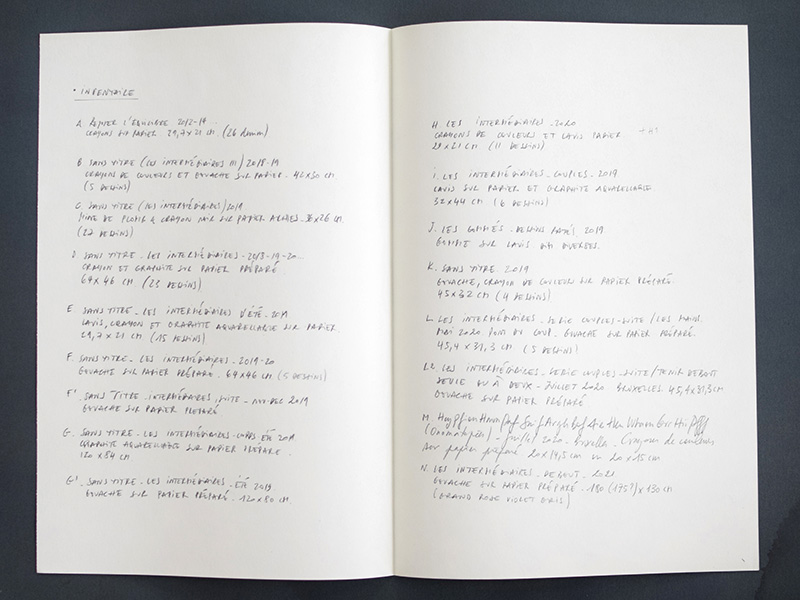 • INVENTAIRE
A. RÉPÉTER L'ÉQUILIBRE 2012-14
CRAYONS SUR PAPIER 29,7 x 21 CM (26 dessins)
B SANS TITRE (LES INTERMÉDIAIRES III) 2018-19
CRAYONS DE COULEURS ET GOUACHE SUR PAPIER - 42 x 30 CM
(5 DESSINS)
C. SANS TITRE (LES INTERMÉDIAIRES) 2019
MINE DE PLOMB & CRAYON NOIR SUR PAPIER ARCHES - 36 x 26 CM.
(22 DESSINS)
D. SANS TITRE - LES INTERMÉDIAIRES - 2018-19-20
CRAYON ET GRAPHITE SUR PAPIER PRÉPARÉ
64 x 46 CM (23 DESSINS)
E SANS TITRE - LES INTERMÉDIAIRES D'ÉTÉ - 2019
LAVIS, CRAYON ET GRAPHITE AQUARELLABLE SUR PAPIER.
29,7 x 21 CM (15 DESSINS)
F. SANS TITRE - LES INTERMÉDIAIRES - 2019-20
GOUACHE SUR PAPIER PRÉPARÉ. 64 x 46 CM (5 DESSINS)
F' - SANS TITRE - INTERMÉDIAIRES, SUITE - NOV-DEC 2019
GOUACHE SUR PAPIER PRÉPARÉ
G. SANS TITRE - LES INTERMÉDIAIRES - CORPS ÉTÉ 2019
GRAPHITE AQUARELLABLE SUR PAPIER PRÉPARÉ.
120 x 84 CM
G' - SANS TITRE - LES INTERMÉDIAIRES - ÉTÉ 2019
GOUACHE SUR PAPIER PRÉPARÉ - 120 x 80 CM
H. LES INTERMÉDIAIRES - 2020
CRAYONS DE COULEURS ET LAVIS PAPIER
29 x 21 CM (11 DESSINS)
I. LES INTERMÉDIAIRES - COUPLES - 2019
LAVIS SUR PAPIER ET GRAPHITE AQUARELLABLE
32 x 44 CM (6 DESSINS)
J. LES GOMMÉS - DESSINS 2019
GOMME SUR LAVIS DIM DIVERSES.
K. SANS TITRE. 2019
GOUACHE, CRAYON DE COULEUR SUR PAPIER PRÉPARÉ.
45 x 32 CM (4 DESSINS)
L. LES INTERMÉDIAIRES - SERIE COUPLES - SUITE / LES MAINS.
MAI 2020 DU COUP - GOUACHE SUR PAPIER PRÉPARÉ.
45,4 x 31,3 CM (5 DESSINS)
L2. LES INTERMÉDIAIRES - SERIE COUPLES - SUITE / TENIR DEBOUT
SEULE OU À DEUX - JUILLET 2020 BRUXELLES. 45,4 x 31,3 CM
GOUACHE SUR PAPIER PRÉPARÉ
M.
(Onomatopées) - juillet 2020 - Bruxelles - Crayons de couleurs
sur papier préparé 20 x 14,5 cm 20 x 15 cm
N. LES INTERMÉDIAIRES - DEBOUT - 2021
GOUACHE SUR PAPIER PRÉPARÉ - 180 (175?) x 130 CM
(GRAND ROSE VIOLET GRIS)